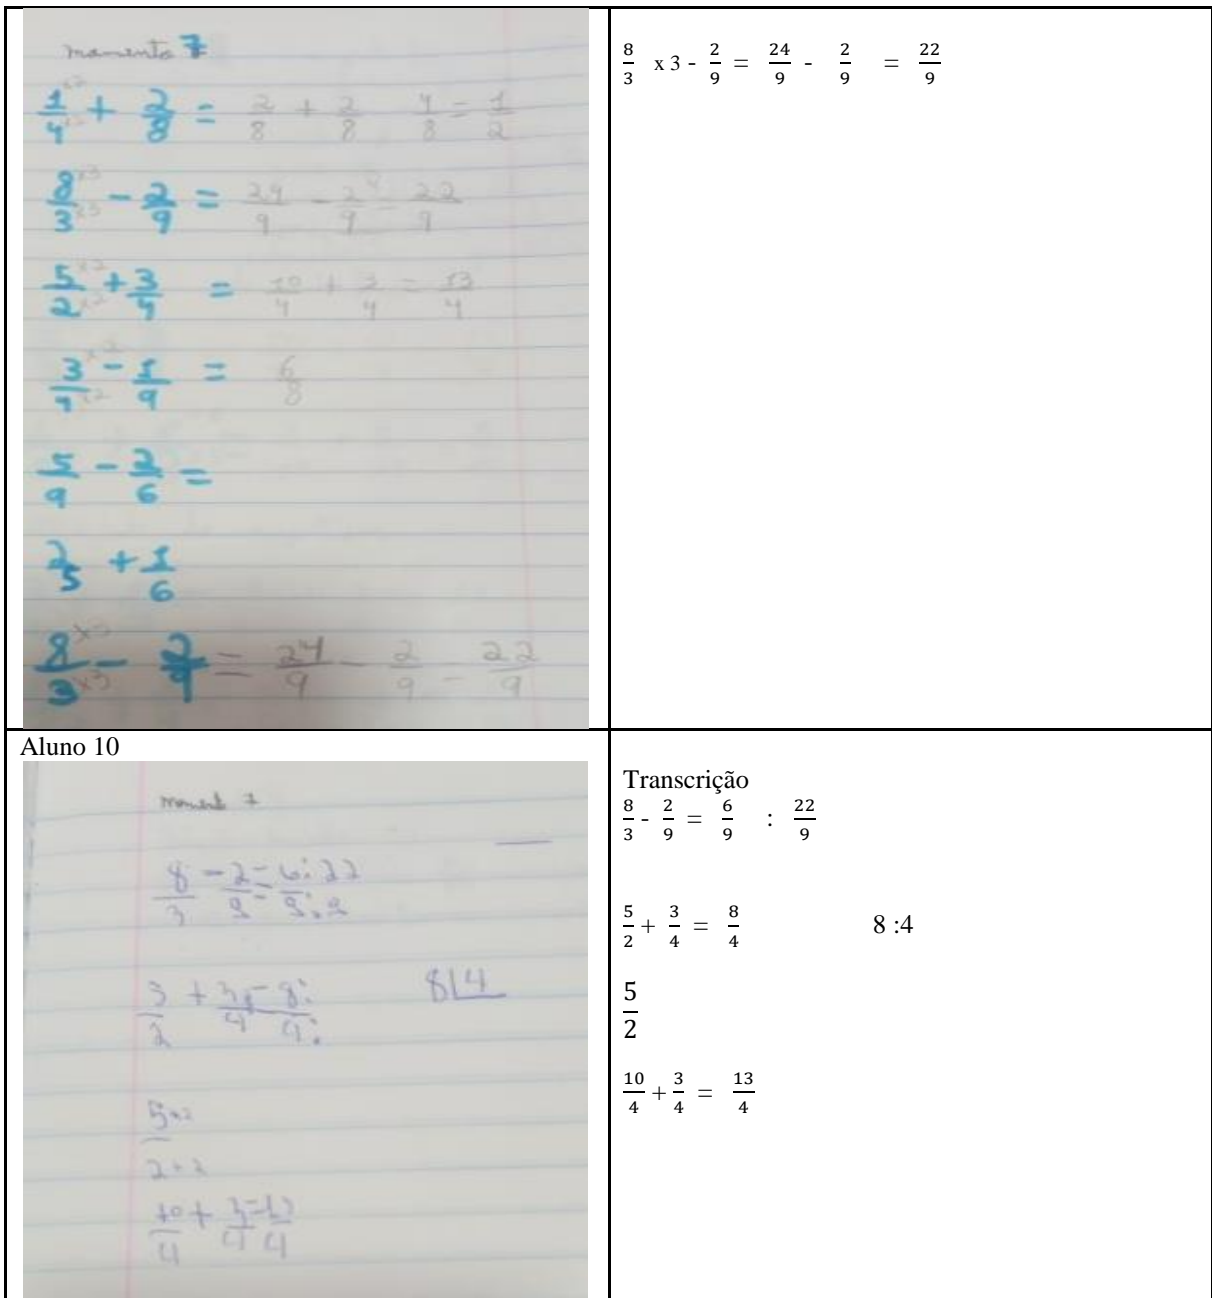 momento 7
1/4 x2 x2 + 2/8 = 2/8 + 2/8 4/8 = 1/2
8/3 x3 x3 - 2/9 = 24/9 - 2/9 = 22/9
5/2 x2 x2 + 3/4 = 10/4 + 3/4 = 13/4
3/4 x2 x2 - 1/9 = 6/8
5/9 - 2/6 =
2/5 + 1/6
8/3 x3 x3 - 2/9 = 24/9 - 2/9 - 22/9
8/3 x 3 - 2/9 = 24/9 - 2/9 = 22/9
Aluno 10
moment 7
8/3 - 2/9 = 6/9 : 22 : 9
+ 3/4 = 8/4 : 8 4
5 x2
10/4 + 3/4 = 13/4
Transcrição
8/3 - 2/9 = 6/9 : 22/9
5/2 + 3/4 = 8/4 8 :4
5/2
10/4 + 3/4 = 13/4